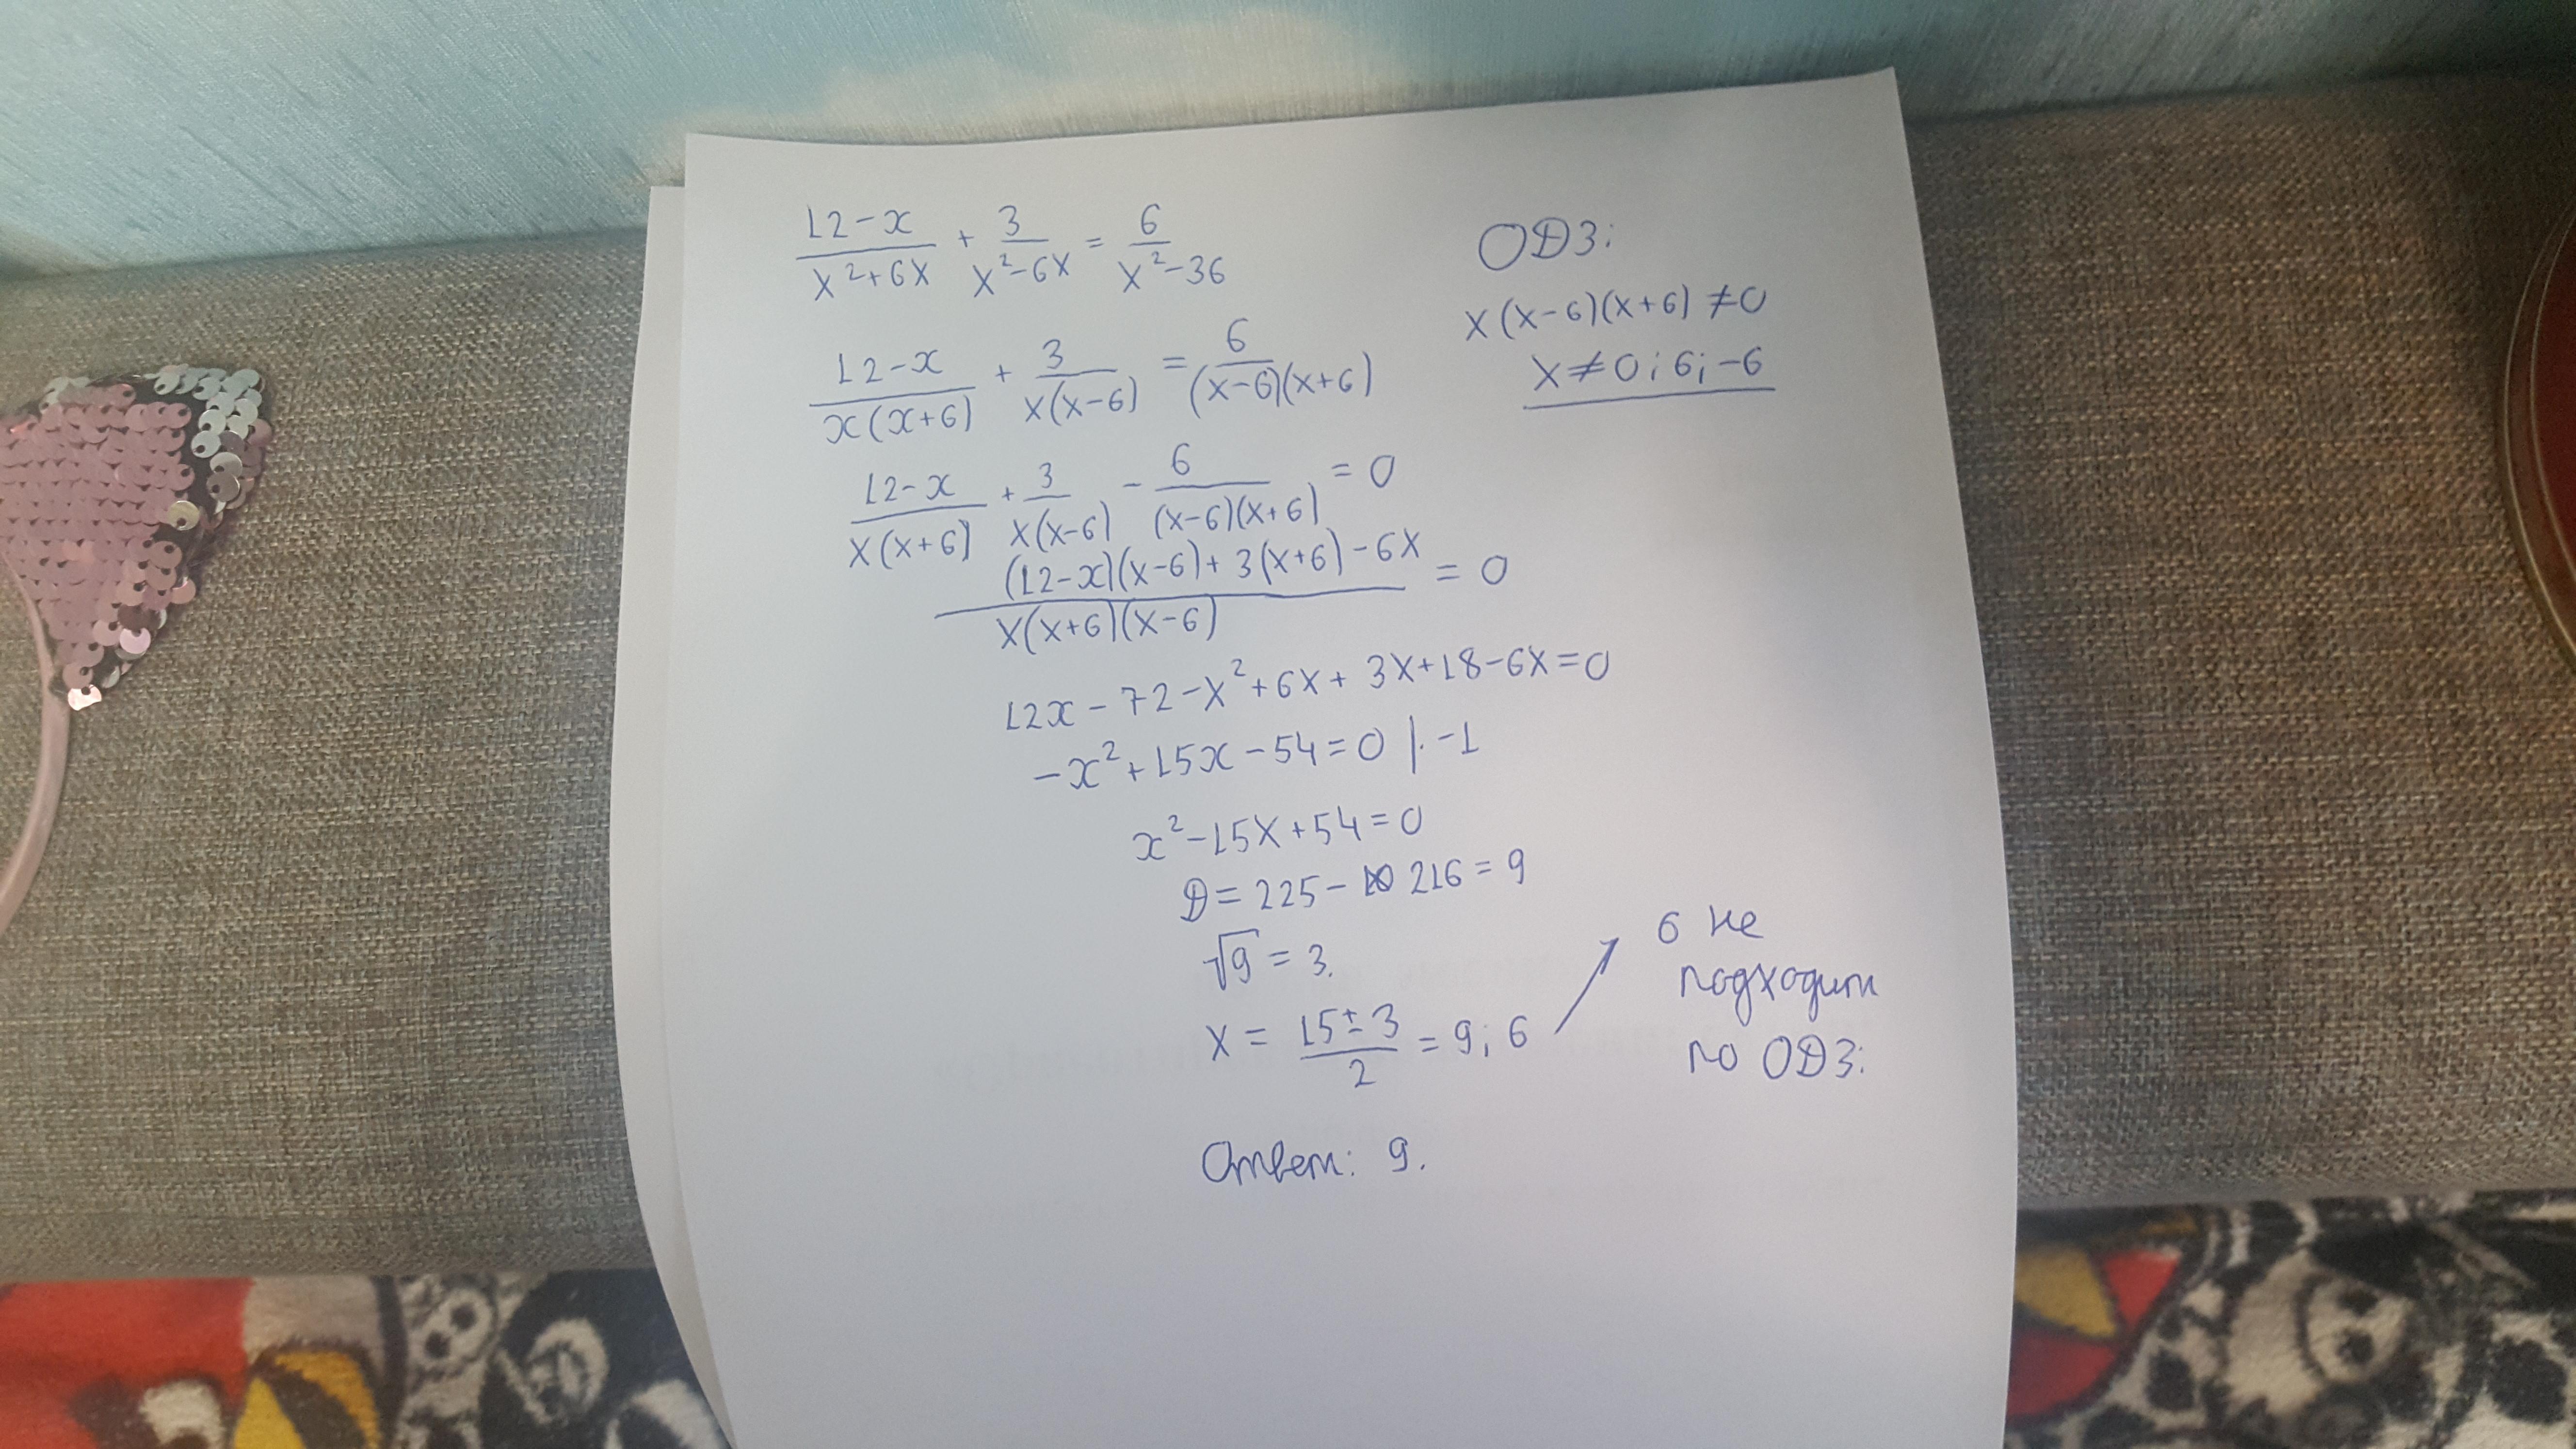 (12-x)/(x²+6x) + 3/(x²-6x) = 6/(x²-36)
ОДЗ:
x(x-6)(x+6) ≠0
x≠0; 6; -6
(12-x)/(x(x+6)) + 3/(x(x-6)) = 6/((x-6)(x+6))
(12-x)/(x(x+6)) + 3/(x(x-6)) - 6/((x-6)(x+6)) = 0
((12-x)(x-6)+3(x+6)-6x)/(x(x+6)(x-6)) = 0
12x-72-x²+6x+3x+18-6x=0
-x²+15x-54=0 |·-1
x²-15x+54=0
D=225-216=9
√9=3.
x=(15±3)/2=9; 6
6 не
подходит
по ОДЗ:
Ответ: 9.